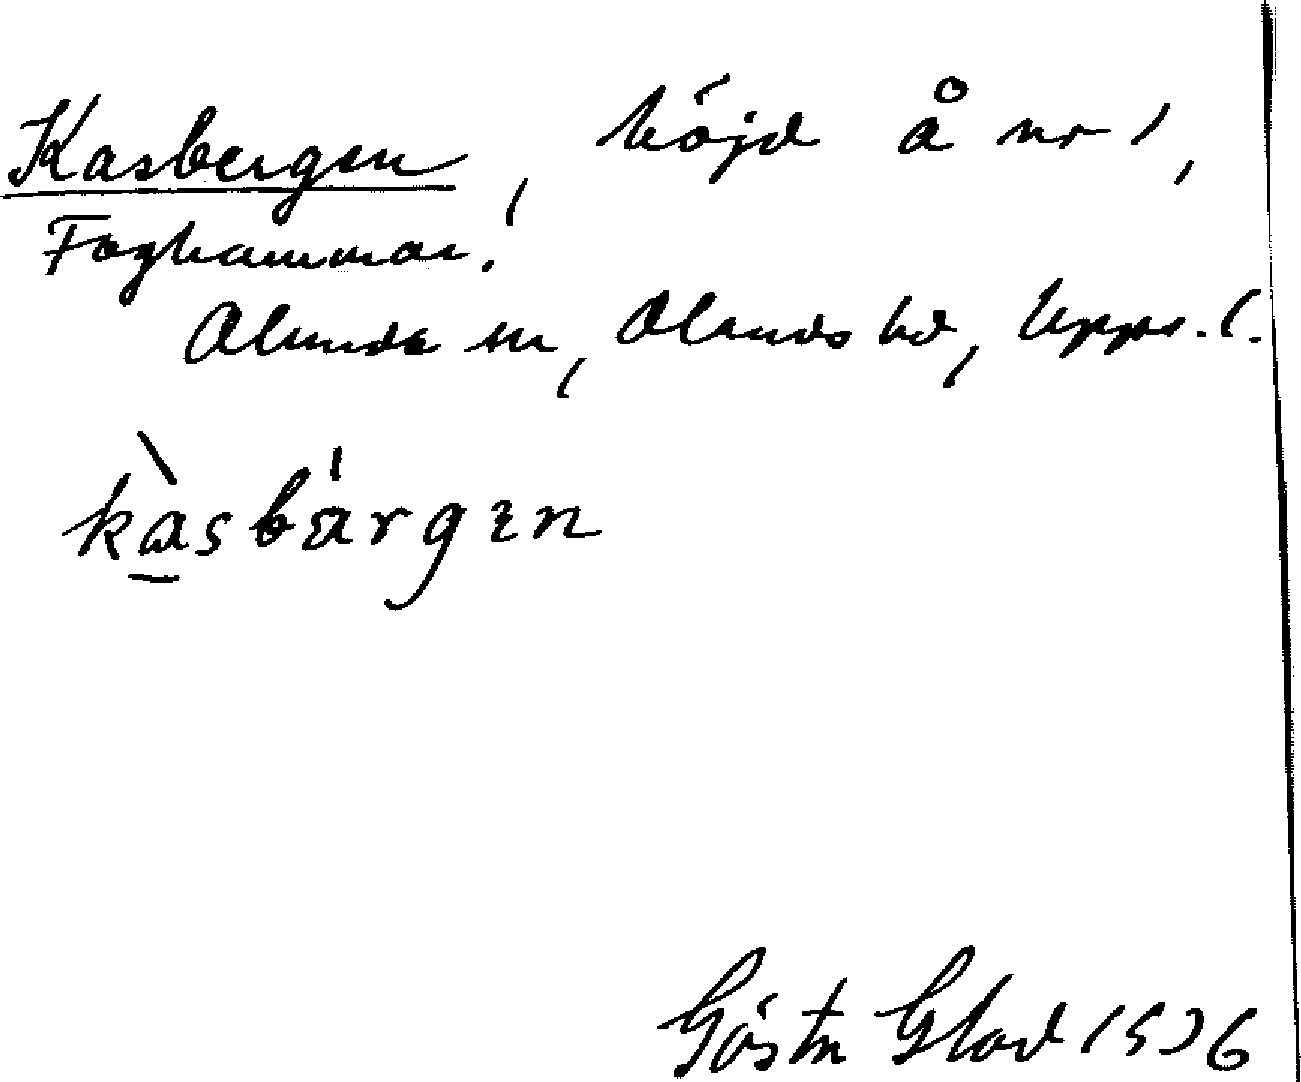 Kasbergen, höjd å nr 1,
Foghammar.
Alunda sn, Olands hd, Upps. l.
kàsbärgen
Gösta Glad 1936